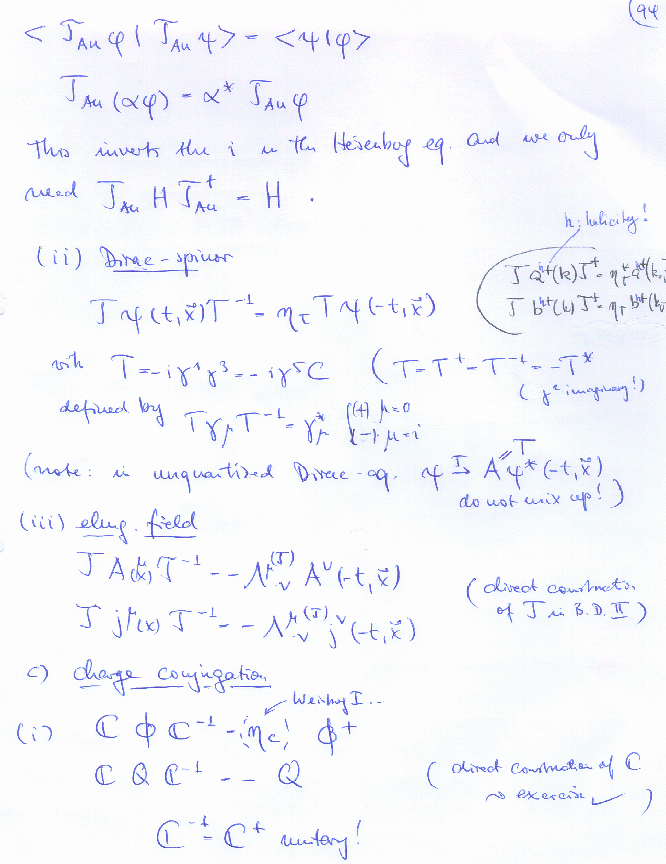 (94
< T_Au φ | T_Au ψ > = < ψ | φ >
T_Au (αφ) = α* T_Au φ
This inverts the i in the Heisenberg eq. and we only
need T_Au H T_Au^† = H .
h: helicity!
(ii) Dirac-spinor
T a^h†(k) T^† =
T b^h†(k) T^† =
T ψ(t, x⃗) T^-1 = η_T T ψ(-t, x⃗)
with T = -i γ^1 γ^3 = -i γ^5 C ( T = T^† = T^-1 = -T*
( γ^2 imaginary! )
defined by T γ_μ T^-1 = γ_μ^* { (+) μ=0
(-) μ=i
(note: in unquantized Dirac-eq. ψ → A ψ*(-t, x⃗)
T
do not mix up! )
(iii) elmg. field
T A^μ(x) T^-1 = - Λ^μ_ν^(T) A^ν(-t, x⃗)
T j^μ(x) T^-1 = - Λ^μ_ν^(T) j^ν(-t, x⃗)
( direct construction
of T in B.D. II )
c) charge conjugation
Weinberg I ..
(i) ℂ φ ℂ^-1 = η_c φ^†
ℂ Q ℂ^-1 = - Q
( direct construction of ℂ
exercise ✓ )
ℂ^-1 = ℂ^† unitary!